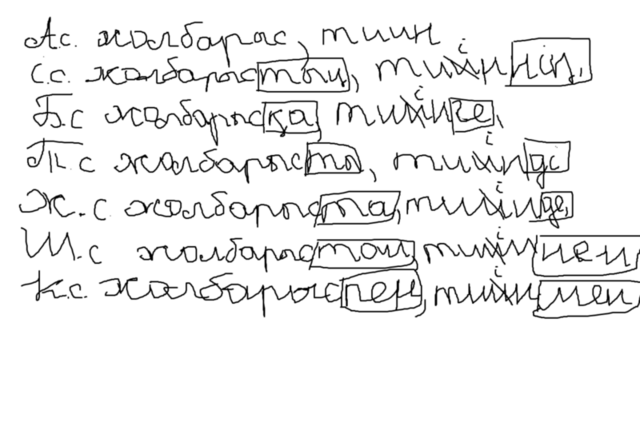 А.с. жолбарыс, тиин.
С.с. жолбарыстың, тиіннің,
Б.с жолбарысқа, тиінге,
Т.с жолбарысты, тиінді
Ж.с жолбарыста, тиінде,
Ш.с жолбарыстан, тиіннен
К.с. жолбарыспен, тиінмен